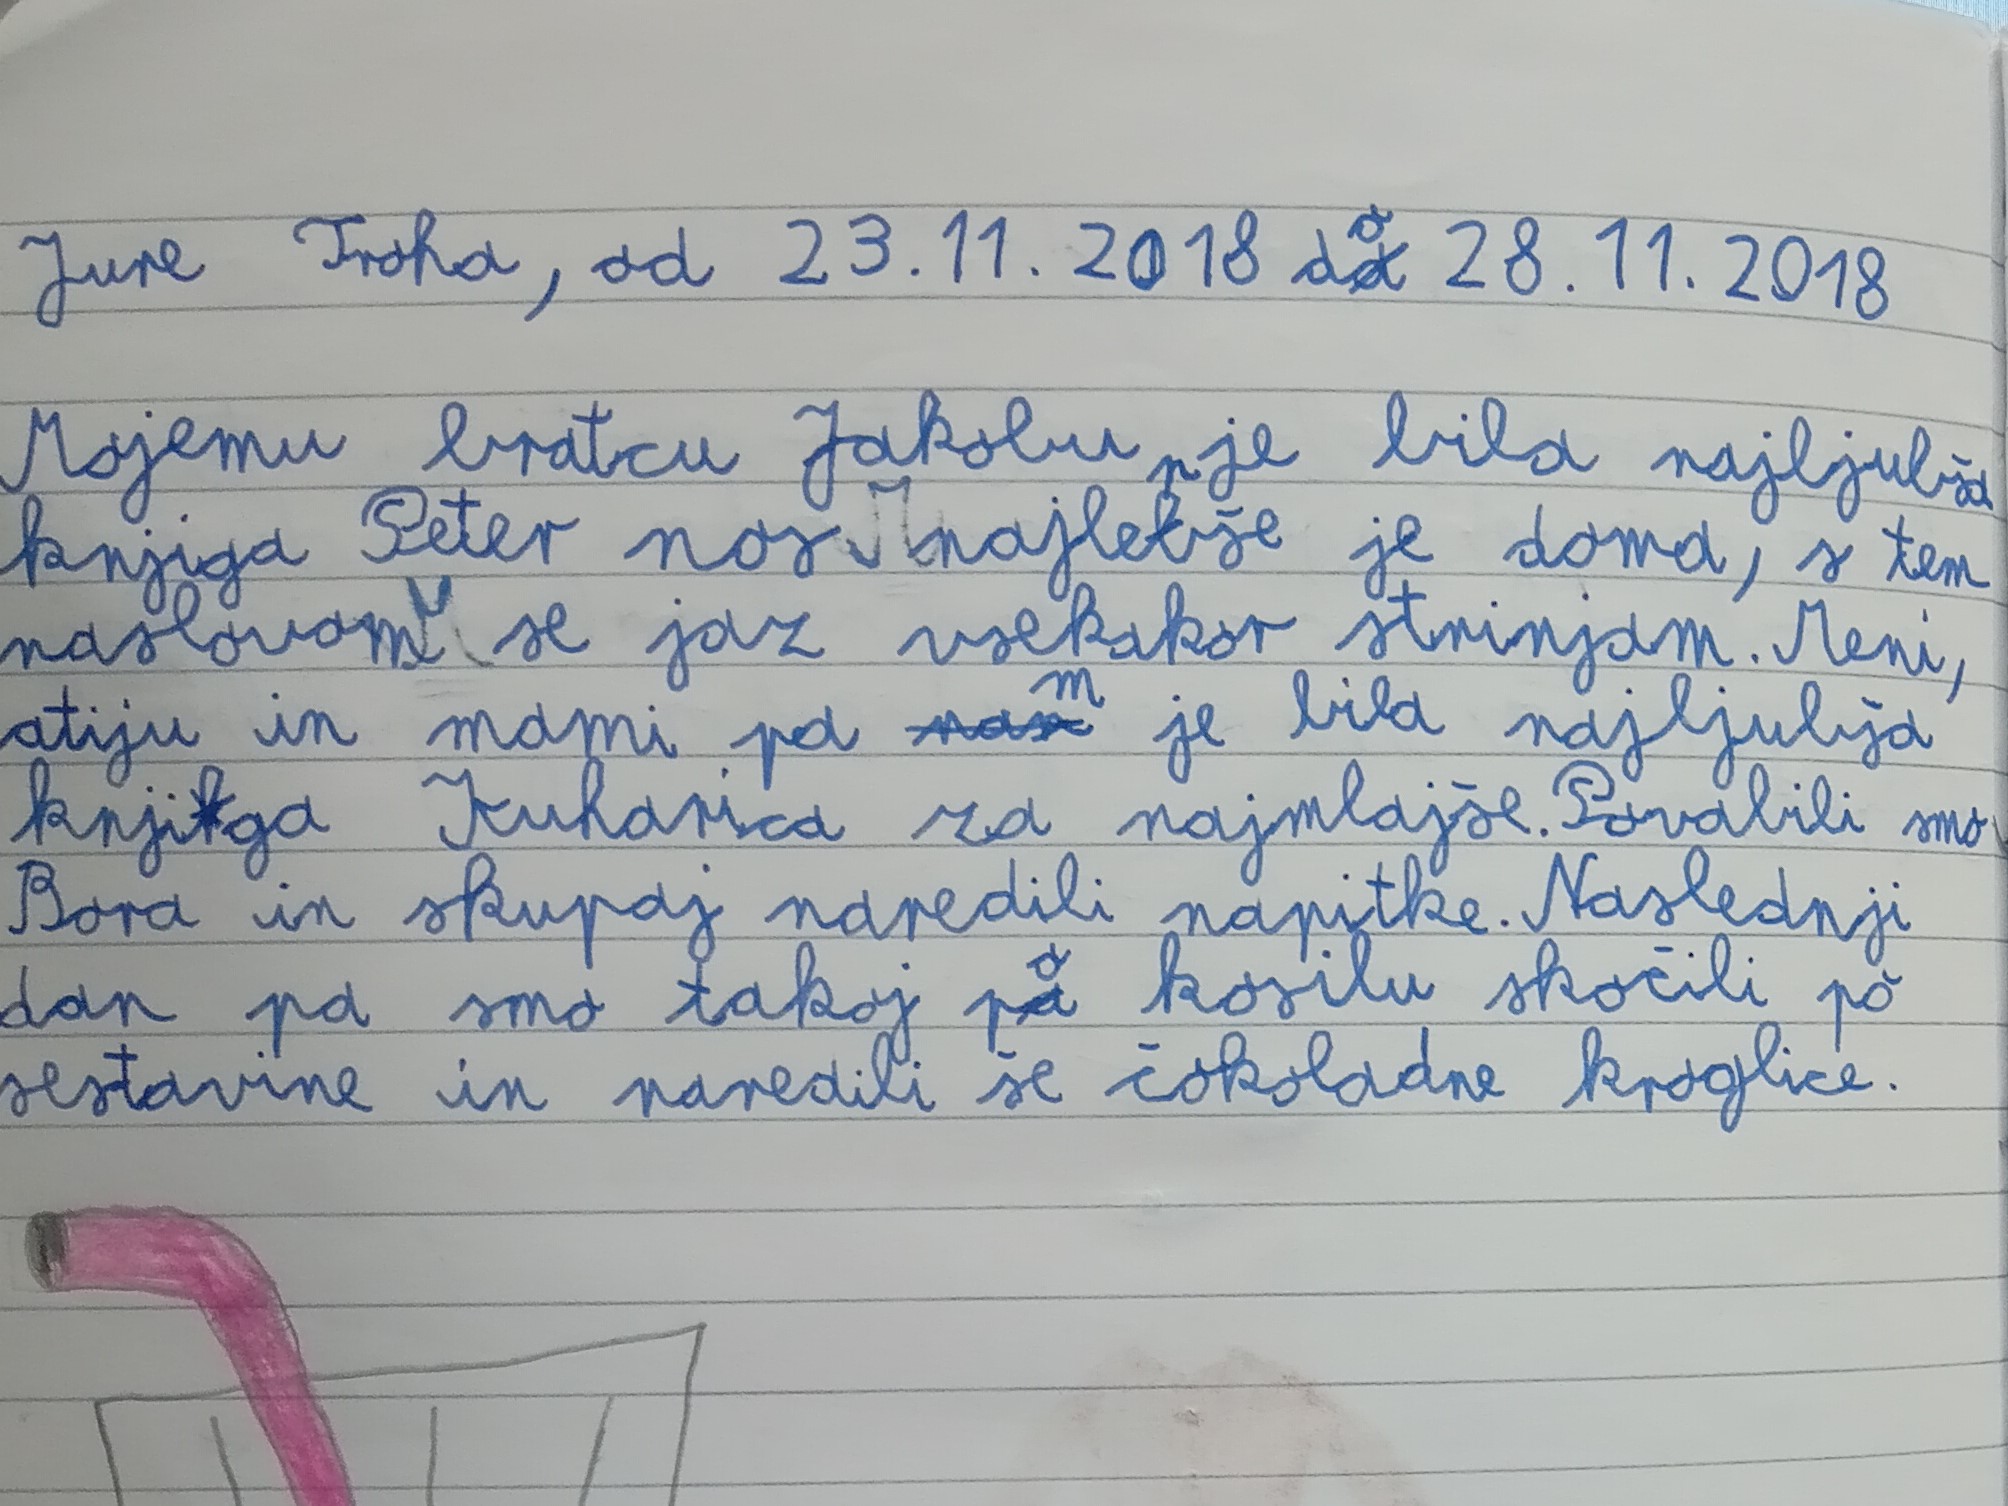 Jure Troha, od 23.11.2018 do 28.11.2018
Mojemu bratcu Jakobu je bila najljubša
knjiga Peter nos najlebše je doma, s tem
naslovom se jaz vsekakor strinjam. Meni,
atiju in mami pa m je bila najljubša
knjiga Kuharica za najmlajše. Povabili smo
Bora in skupaj naredili napitke. Naslednji
dan pa smo takoj po kosilu skočili po
sestavine in naredili še čokoladne kroglice.